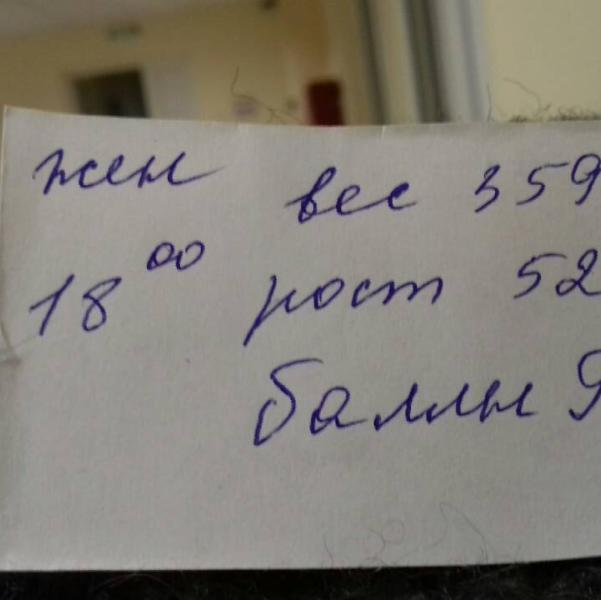 жен вес 359
18⁰⁰ рост 52
баллы 9